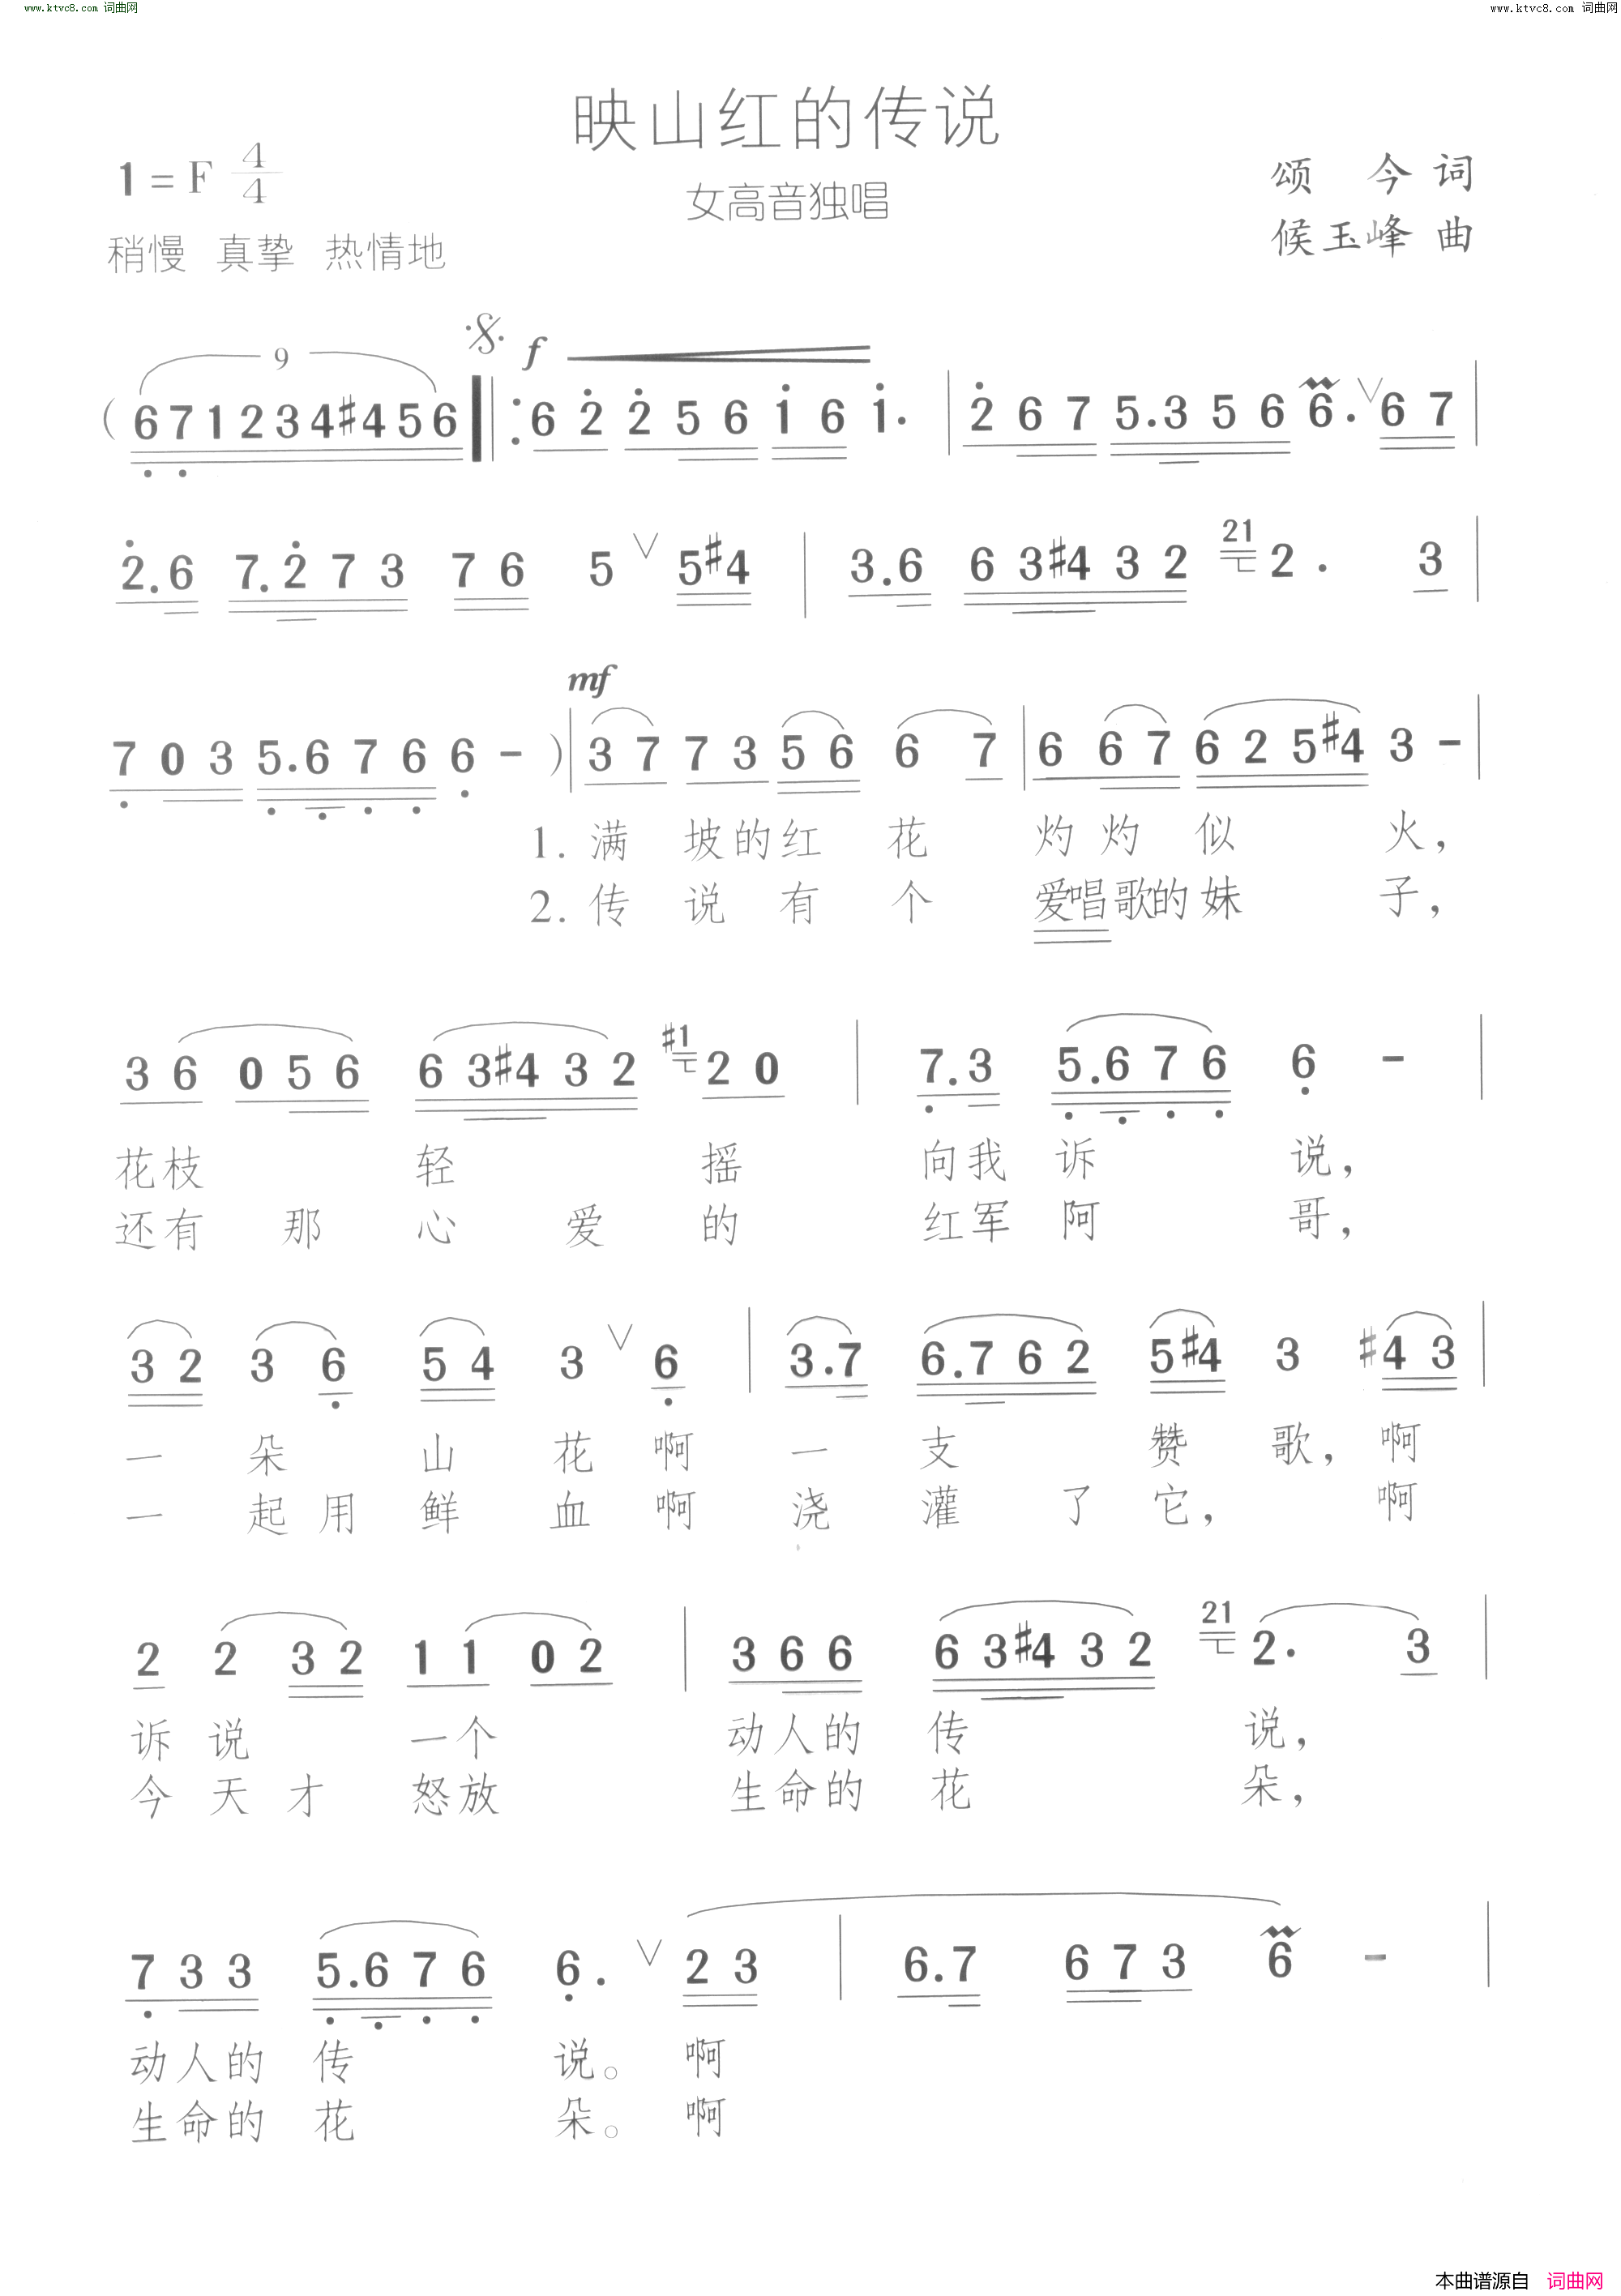 www.ktvc8.com 词曲网
www.ktvc8.com 词曲网
映山红的传说
1 = F 4/4
女高音独唱
颂 今 词
候玉峰 曲
稍慢 真挚 热情地
9
f
( 6 7 1 2 3 4 #4 5 6 ‖: 6 2 2 5 6 1 6 1. | 2 6 7 5.3 5 6 6. ∨ 6 7 |
2.6 7.2 7 3 7 6 5 ∨ 5 #4 | 3.6 6 3 #4 3 2 21 2. 3 |
mf
7 0 3 5.6 7 6 6 - ) | 3 7 7 3 5 6 6 7 | 6 6 7 6 2 5 #4 3 - |
1. 满 坡的红 花 灼 灼 似 火，
2. 传 说 有 个 爱唱歌的 妹 子，
3 6 0 5 6 6 3 #4 3 2 #1 2 0 | 7.3 5.6 7 6 6 - |
花枝 轻 摇 向我 诉 说，
还有 那 心 爱 的 红军 阿 哥，
3 2 3 6 5 4 3 ∨ 6 | 3.7 6.7 6 2 5 #4 3 #4 3 |
一 朵 山 花 啊 一 支 赞 歌，啊
一 起 用 鲜 血 啊 浇 灌 了 它， 啊
2 2 3 2 1 1 0 2 | 3 6 6 6 3 #4 3 2 21 2. 3 |
诉 说 一个 动人的 传 说，
今 天 才 怒放 生命的 花 朵，
7 3 3 5.6 7 6 6. ∨ 2 3 | 6.7 6 7 3 6 - |
动人的 传 说。 啊
生命的 花 朵。 啊
本曲谱源自 词曲网